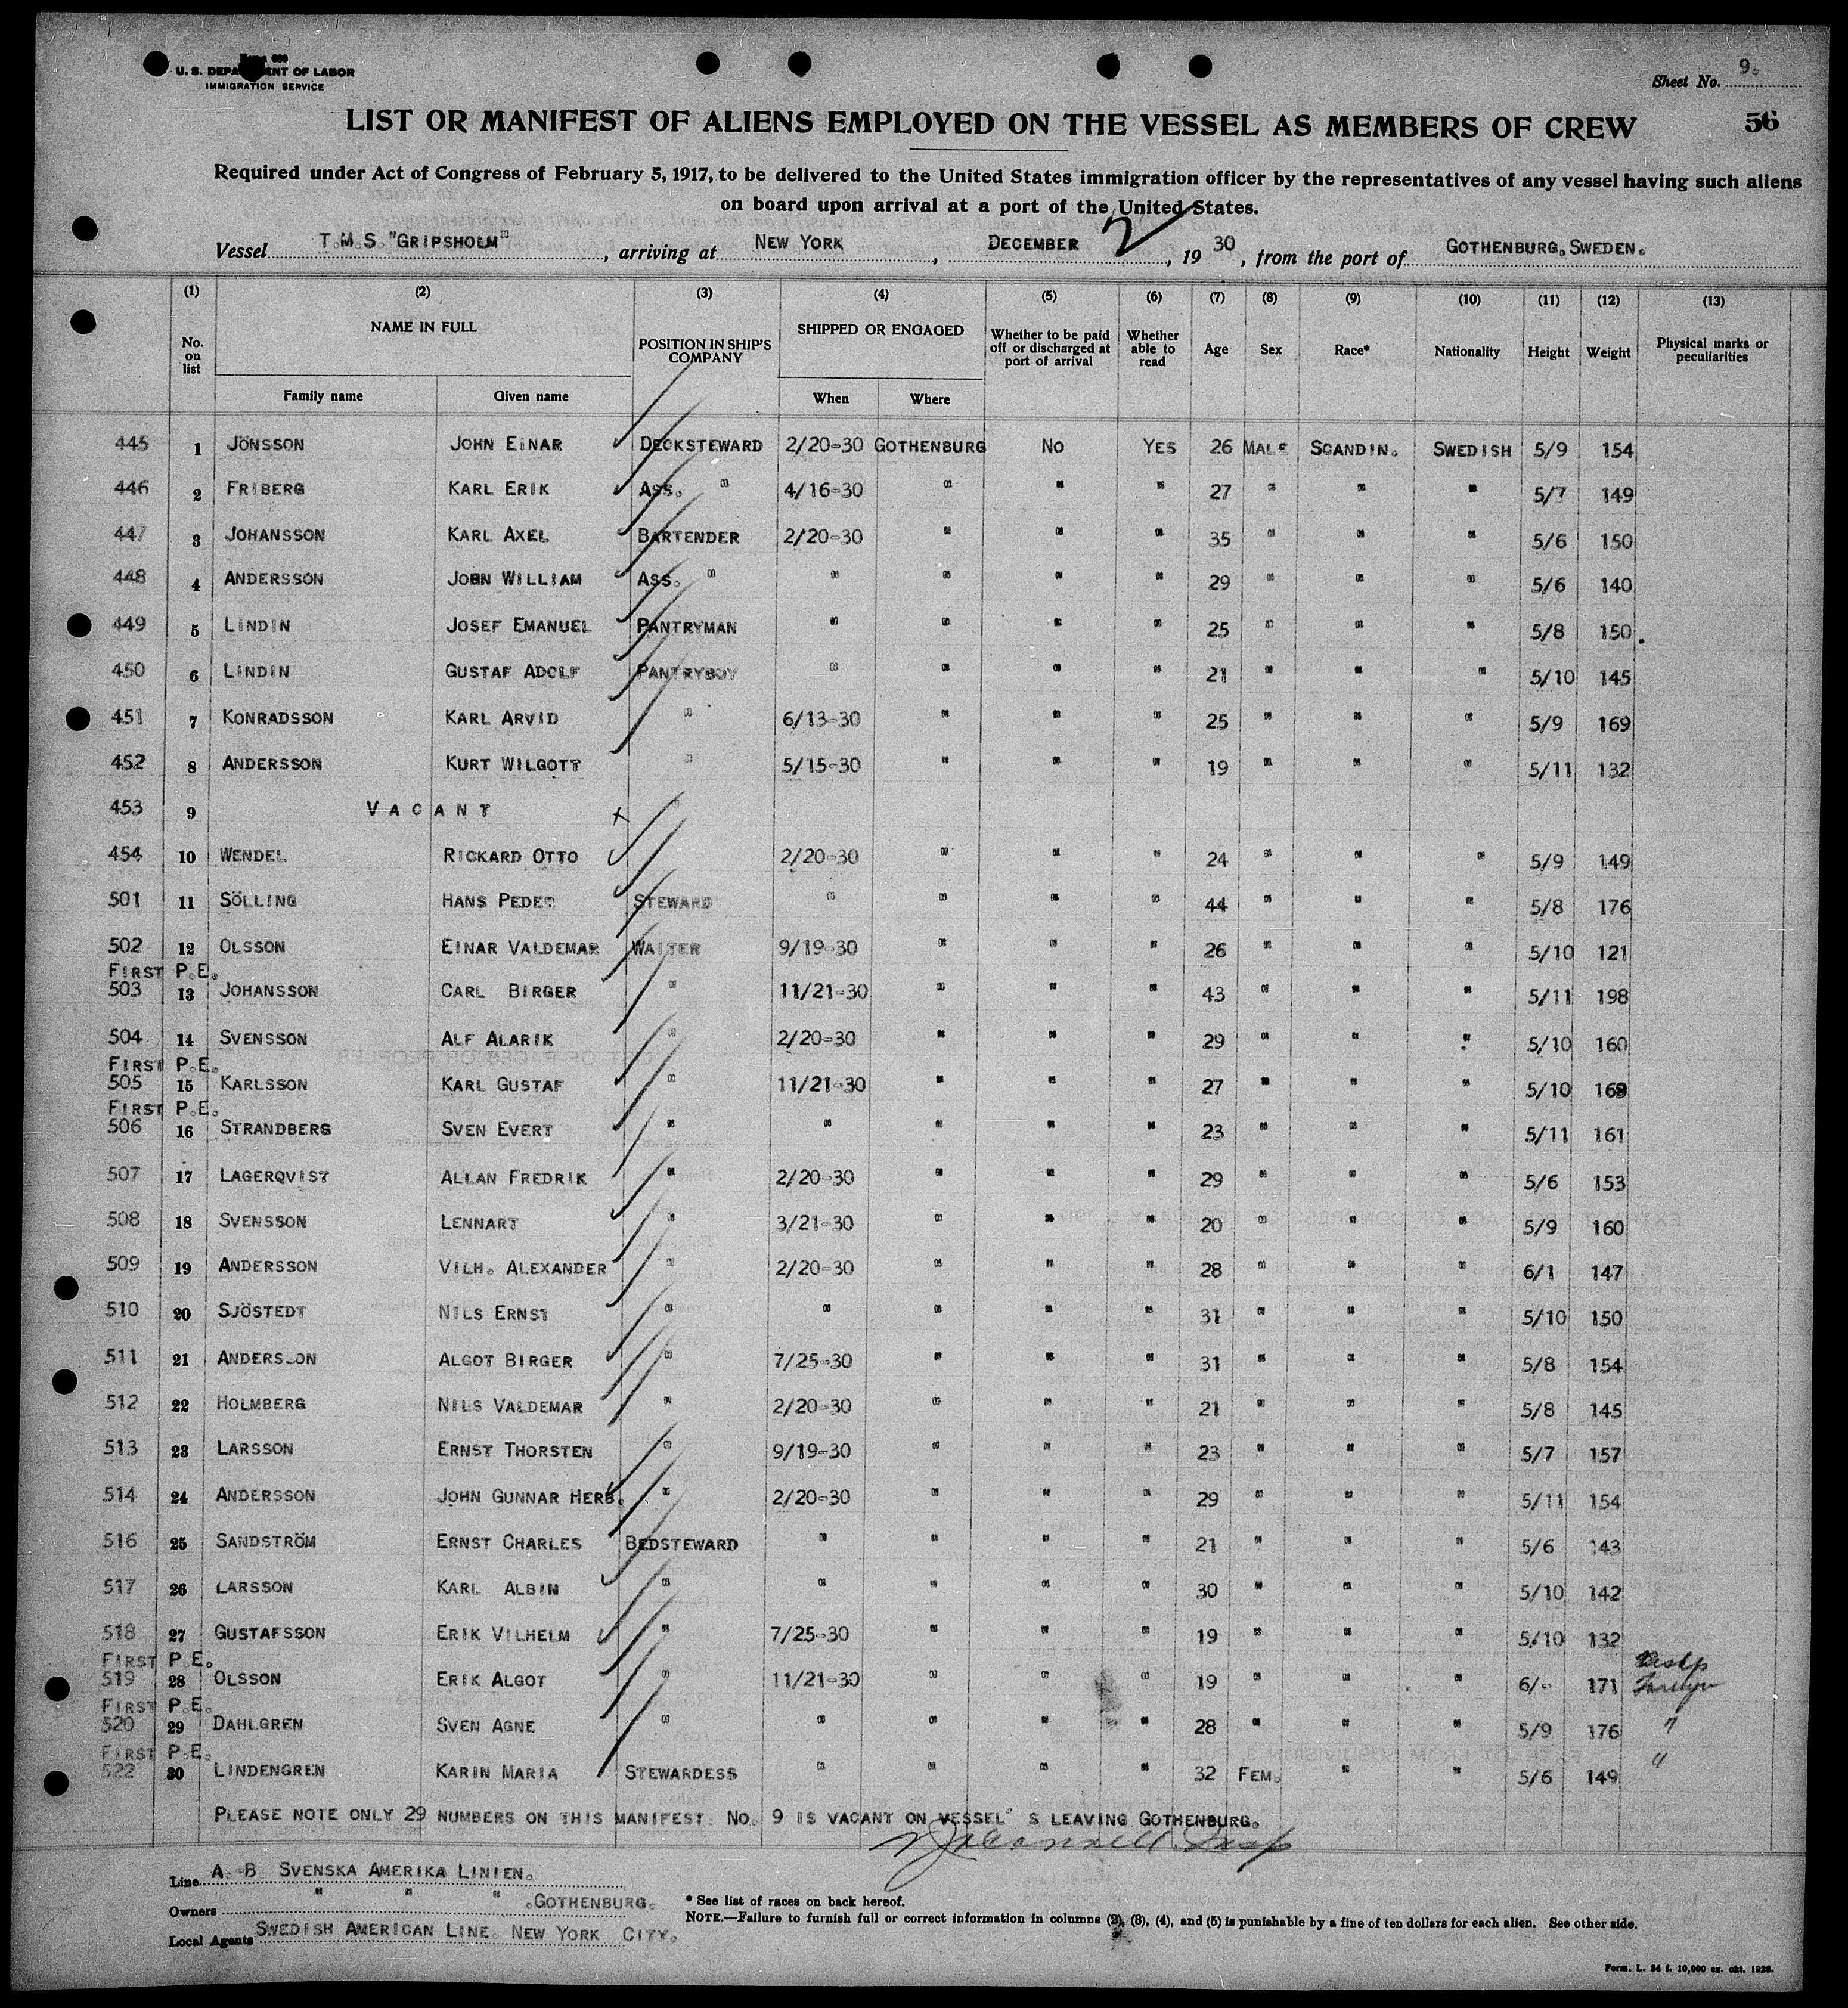 Form 680
U. S. DEPARTMENT OF LABOR
IMMIGRATION SERVICE
Sheet No. 9.
LIST OR MANIFEST OF ALIENS EMPLOYED ON THE VESSEL AS MEMBERS OF CREW 56
Required under Act of Congress of February 5, 1917, to be delivered to the United States immigration officer by the representatives of any vessel having such aliens
on board upon arrival at a port of the United States.
Vessel T.M.S. "GRIPSHOLM", arriving at NEW YORK, DECEMBER 2, 1930, from the port of GOTHENBURG, SWEDEN.
(1) (2) (3) (4) (5) (6) (7) (8) (9) (10) (11) (12) (13)
No. on list NAME IN FULL POSITION IN SHIP'S COMPANY SHIPPED OR ENGAGED Whether to be paid off or discharged at port of arrival Whether able to read Age Sex Race* Nationality Height Weight Physical marks or peculiarities
Family name Given name When Where
445 1 JÖNSSON JOHN EINAR DECKSTEWARD 2/20-30 GOTHENBURG NO YES 26 MALE SCANDIN. SWEDISH 5/9 154
446 2 FRIBERG KARL ERIK ASS. " 4/16-30 " " " 27 " " " 5/7 149
447 3 JOHANSSON KARL AXEL BARTENDER 2/20-30 " " " 35 " " " 5/6 150
448 4 ANDERSSON JOHN WILLIAM ASS. " " " " " 29 " " " 5/6 140
449 5 LINDIN JOSEF EMANUEL PANTRYMAN " " " " 25 " " " 5/8 150
450 6 LINDIN GUSTAF ADOLF PANTRYBOY " " " " 21 " " " 5/10 145
451 7 KONRADSSON KARL ARVID " 6/13-30 " " " 25 " " " 5/9 169
452 8 ANDERSSON KURT WILGOTT " 5/15-30 " " " 19 " " " 5/11 132
453 9 VACANT x "
454 10 WENDEL RICKARD OTTO 2/20-30 " " " 24 " " " 5/9 149
501 11 SÖLLING HANS PEDER STEWARD " " " " 44 " " " 5/8 176
502 12 OLSSON EINAR VALDEMAR WAITER 9/19-30 " " " 26 " " " 5/10 121
FIRST P.E.
503 13 JOHANSSON CARL BIRGER " 11/21-30 " " " 43 " " " 5/11 198
504 14 SVENSSON ALF ALARIK " 2/20-30 " " " 29 " " " 5/10 160
FIRST P.E.
505 15 KARLSSON KARL GUSTAF " 11/21-30 " " " 27 " " " 5/10
FIRST P.E.
506 16 STRANDBERG SVEN EVERT " " " " " 23 " " " 5/11 161
507 17 LAGERQVIST ALLAN FREDRIK " 2/20-30 " " " 29 " " " 5/6 153
508 18 SVENSSON LENNART " 3/21-30 " " " 20 " " " 5/9 160
509 19 ANDERSSON VILH. ALEXANDER " 2/20-30 " " " 28 " " " 6/1 147
510 20 SJÖSTEDT NILS ERNST " " " " " 31 " " " 5/10 150
511 21 ANDERSSON ALGOT BIRGER " 7/25-30 " " " 31 " " " 5/8 154
512 22 HOLMBERG NILS VALDEMAR " 2/20-30 " " " 21 " " " 5/8 145
513 23 LARSSON ERNST THORSTEN " 9/19-30 " " " 23 " " " 5/7 157
514 24 ANDERSSON JOHN GUNNAR HERB. " 2/20-30 " " " 29 " " " 5/11 154
516 25 SANDSTRÖM ERNST CHARLES BEDSTEWARD " " " " 21 " " " 5/6 143
517 26 LARSSON KARL ALBIN " " " " " 30 " " " 5/10 142
518 27 GUSTAFSSON ERIK VILHELM " 7/25-30 " " " 19 " " " 5/10 132
FIRST P.E.
519 28 OLSSON ERIK ALGOT " 11/21-30 " " " 19 " " " 6/- 171
FIRST P.E.
520 29 DAHLGREN SVEN AGNE " " " " " 28 " " " 5/9 176 "
FIRST P.E.
522 30 LINDENGREN KARIN MARIA STEWARDESS " " " " 32 FEM. " " 5/6 149 "
PLEASE NOTE ONLY 29 NUMBERS ON THIS MANIFEST. NO. 9 IS VACANT ON VESSEL'S LEAVING GOTHENBURG.
Line A. B. SVENSKA AMERIKA LINIEN.
Owners " " " .GOTHENBURG.
Local Agents SWEDISH AMERICAN LINE. NEW YORK CITY.
* See list of races on back hereof.
NOTE.—Failure to furnish full or correct information in columns (2), (3), (4), and (5) is punishable by a fine of ten dollars for each alien. See other side.
Form. L. 34 f. 10,000 ex. okt. 1928.